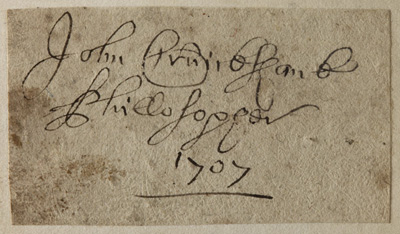 John Cruikshank
Phillosopper
1707